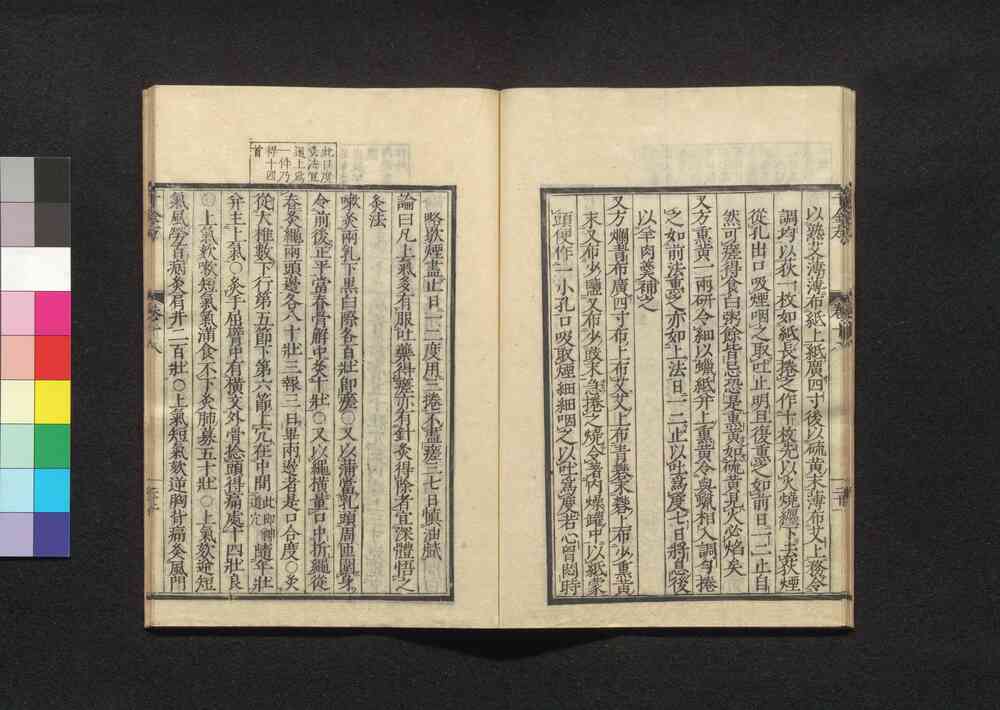 以熟艾薄薄布紙上紙廣四寸後以硫黃末薄布艾上務令
調均以荻一枚如紙長捲之作十枚先以火燒纏下去荻煙
從孔出口吸煙咽之取吐止明旦復熏之如前日一二止自
然可瘥得食白粥餘皆忌恐是熏黃如硫黃見火必焰矣
又方熏黃一兩研令細以蠟紙并上熏黃令與蠟相入調勻捲
之如前法熏之亦如上法日一二止以吐爲度七日將息後
以羊肉羹補之
又方爛青布廣四寸布上布艾艾上布青礬末礬上布少熏黃
末又布少鹽又布少豉末急捲之燒令著內燥罐中以紙蒙
頭便作一小孔口吸取煙細細咽之以吐爲度若心曾悶時
略歇煙盡止日一二度用三捲不盡瘥三七日愼油膩
論曰凡上氣多有服吐藥得瘥亦有針灸得除者宜深體悟之
灸法
嗽灸兩乳下黑白際各百壯即瘥○又以蒲當乳頭周匝圍身
令前後正平當脊骨解中灸十壯○又以繩橫量口中折繩從
脊灸繩兩頭邊各八十壯三報三日畢兩邊者是口合度○灸
從大椎數下行第五節下第六節上穴在中間此即神道穴隨年壯
并主上氣○灸手屈臂中有橫文外骨捻頭得痛處十四壯良
○上氣欬嗽短氣氣滿食不下灸肺募五十壯○上氣欬逆短
氣風勞百病灸肩井二百壯○上氣短氣欬逆胸背痛灸風門